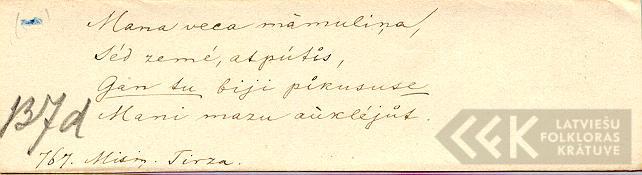 Mana veca māmuliņa,
Sēd zemē, atpūtīs,
Gan tu biji pikususe
Mani mazu aũklējũt.
137d
767. Misiņ. Tirza.
LATVIEŠU
FOLKLORAS
KRĀTUVE